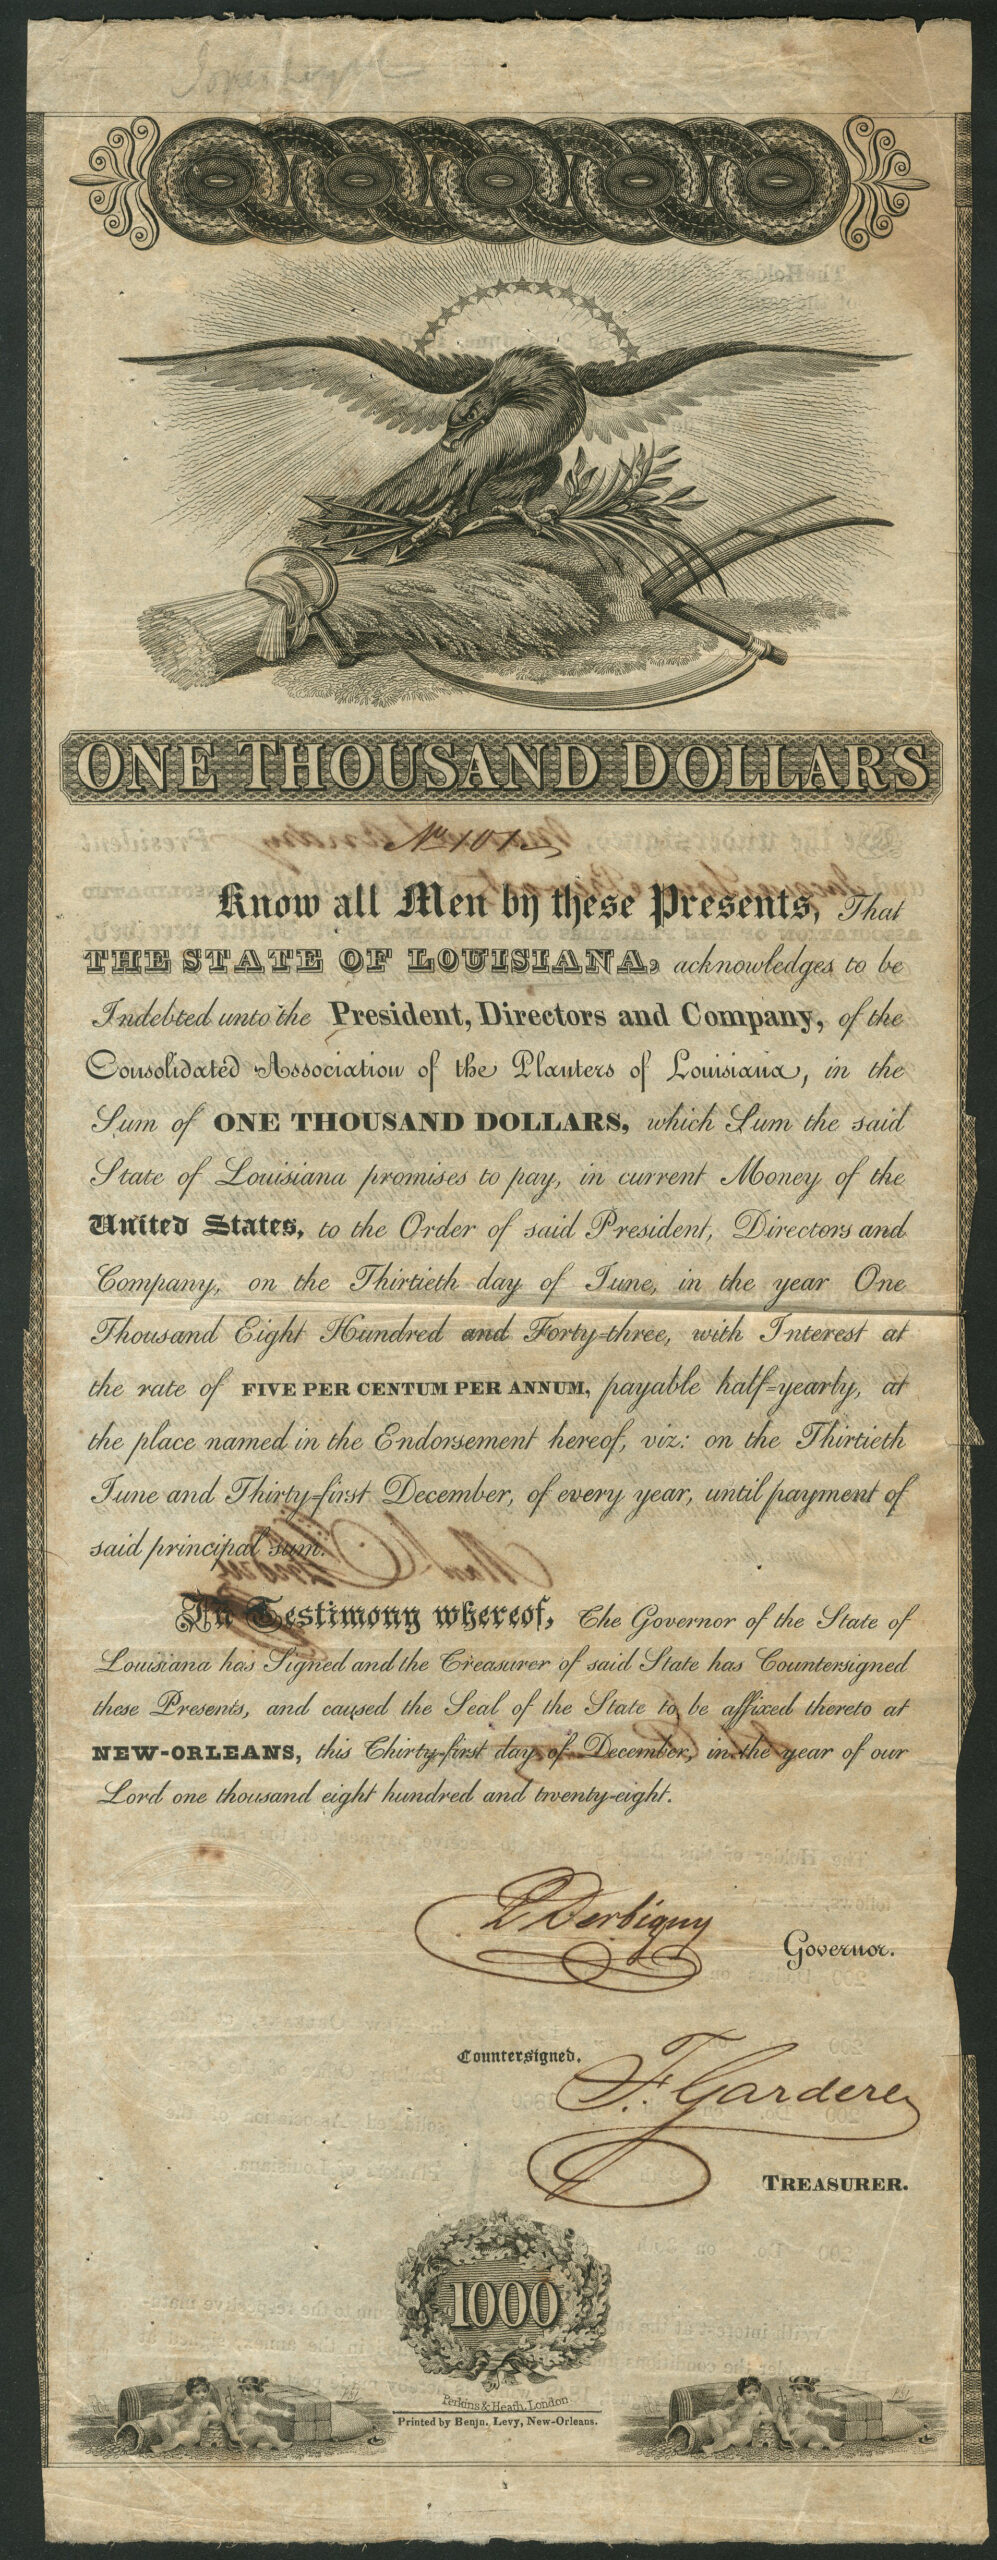 ONE THOUSAND DOLLARS
No. 101
Know all Men by these Presents, That
THE STATE OF LOUISIANA, acknowledges to be
Indebted unto the President, Directors and Company, of the
Consolidated Association of the Planters of Louisiana, in the
Sum of ONE THOUSAND DOLLARS, which Sum the said
State of Louisiana promises to pay, in current Money of the
United States, to the Order of said President, Directors and
Company, on the Thirtieth day of June, in the year One
Thousand Eight Hundred and Forty=three, with Interest at
the rate of FIVE PER CENTUM PER ANNUM, payable half=yearly, at
the place named in the Endorsement hereof, viz: on the Thirtieth
June and Thirty=first December, of every year, until payment of
said principal sum.
In Testimony whereof, The Governor of the State of
Louisiana has Signed and the Treasurer of said State has Countersigned
these Presents, and caused the Seal of the State to be affixed thereto at
NEW-ORLEANS, this Thirty=first day of December, in the year of our
Lord one thousand eight hundred and twenty-eight.
P Derbigny
Governor.
Countersigned.
F. Gardere
TREASURER.
1000
Perkins & Heath, London
Printed by Benjn. Levy, New-Orleans.